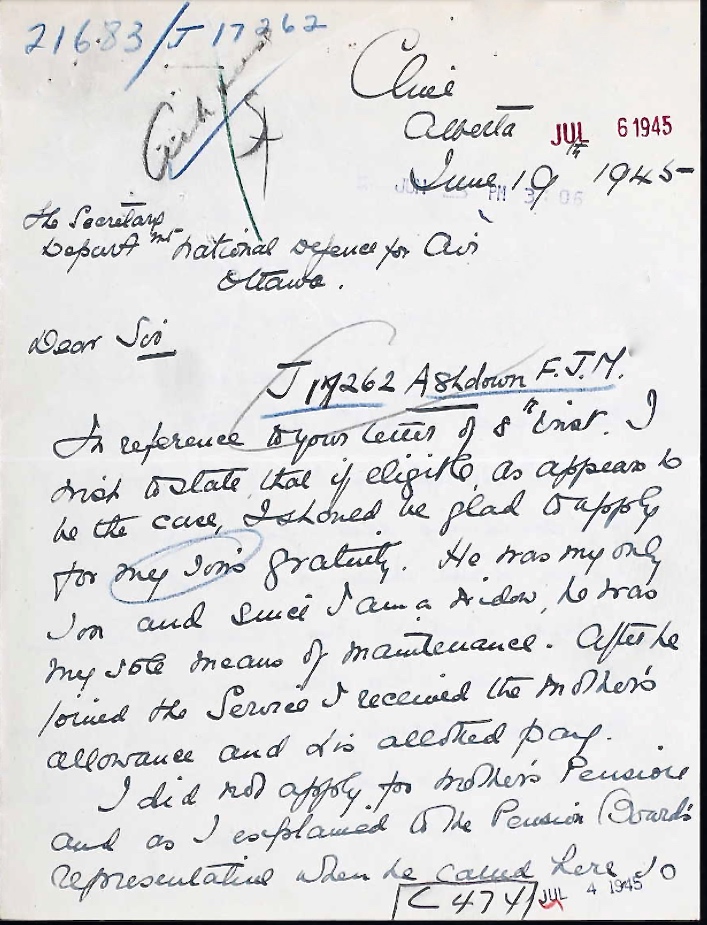 21683/J 17262
Clive
Alberta
JUL 6 1945
June 19th 1945
PM 3 06
The Secretary
Departmnt National Defence for Air
Ottawa.
Dear Sir
J 17262 Ashdown F.J.M.
In reference to your letter of 8th inst. I
wish to state, that if eligible, as appears to
be the case, I should be glad to apply
for my son's gratuity. He was my only
son and since I am a widow, he was
my sole means of maintenance. After he
joined the Service I received the Mother's
allowance and his allotted pay.
I did not apply for Mother's Pension
and as I explained to the Pension Board's
representative when he called here so
C 474
JUL 4 1945